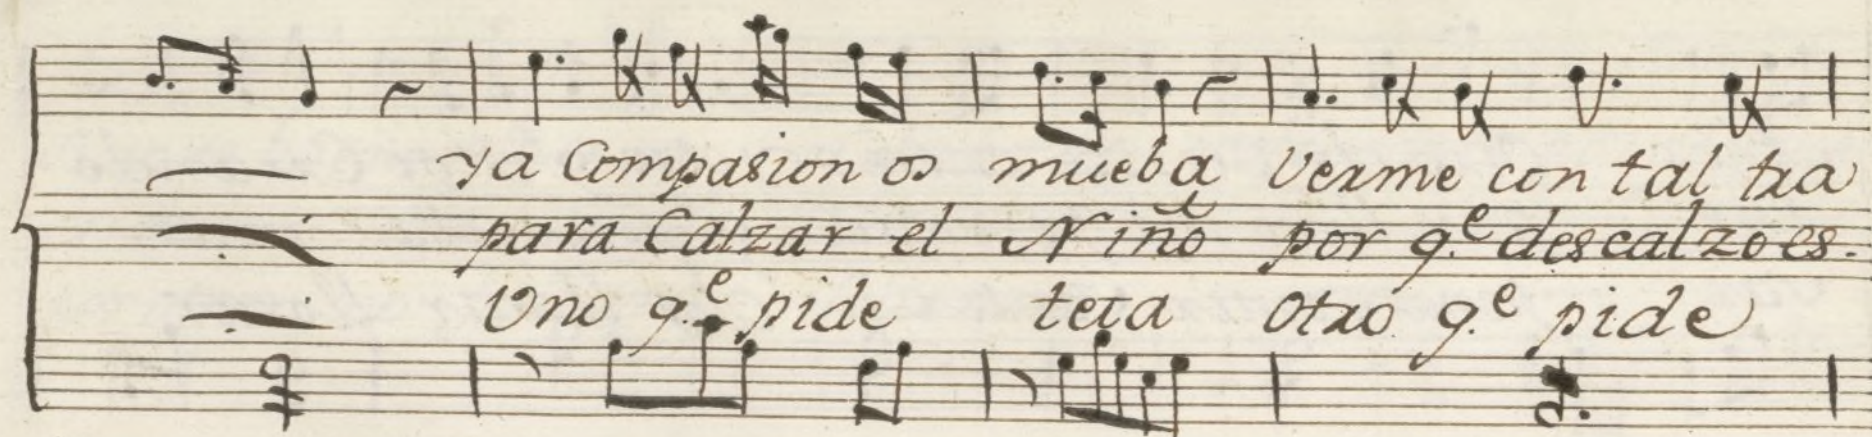 ya Compasion os mueba Verme con tal tra
para Calzar el Niño por q.e descalzo es.
Uno q.e pide teta Otro q.e pide